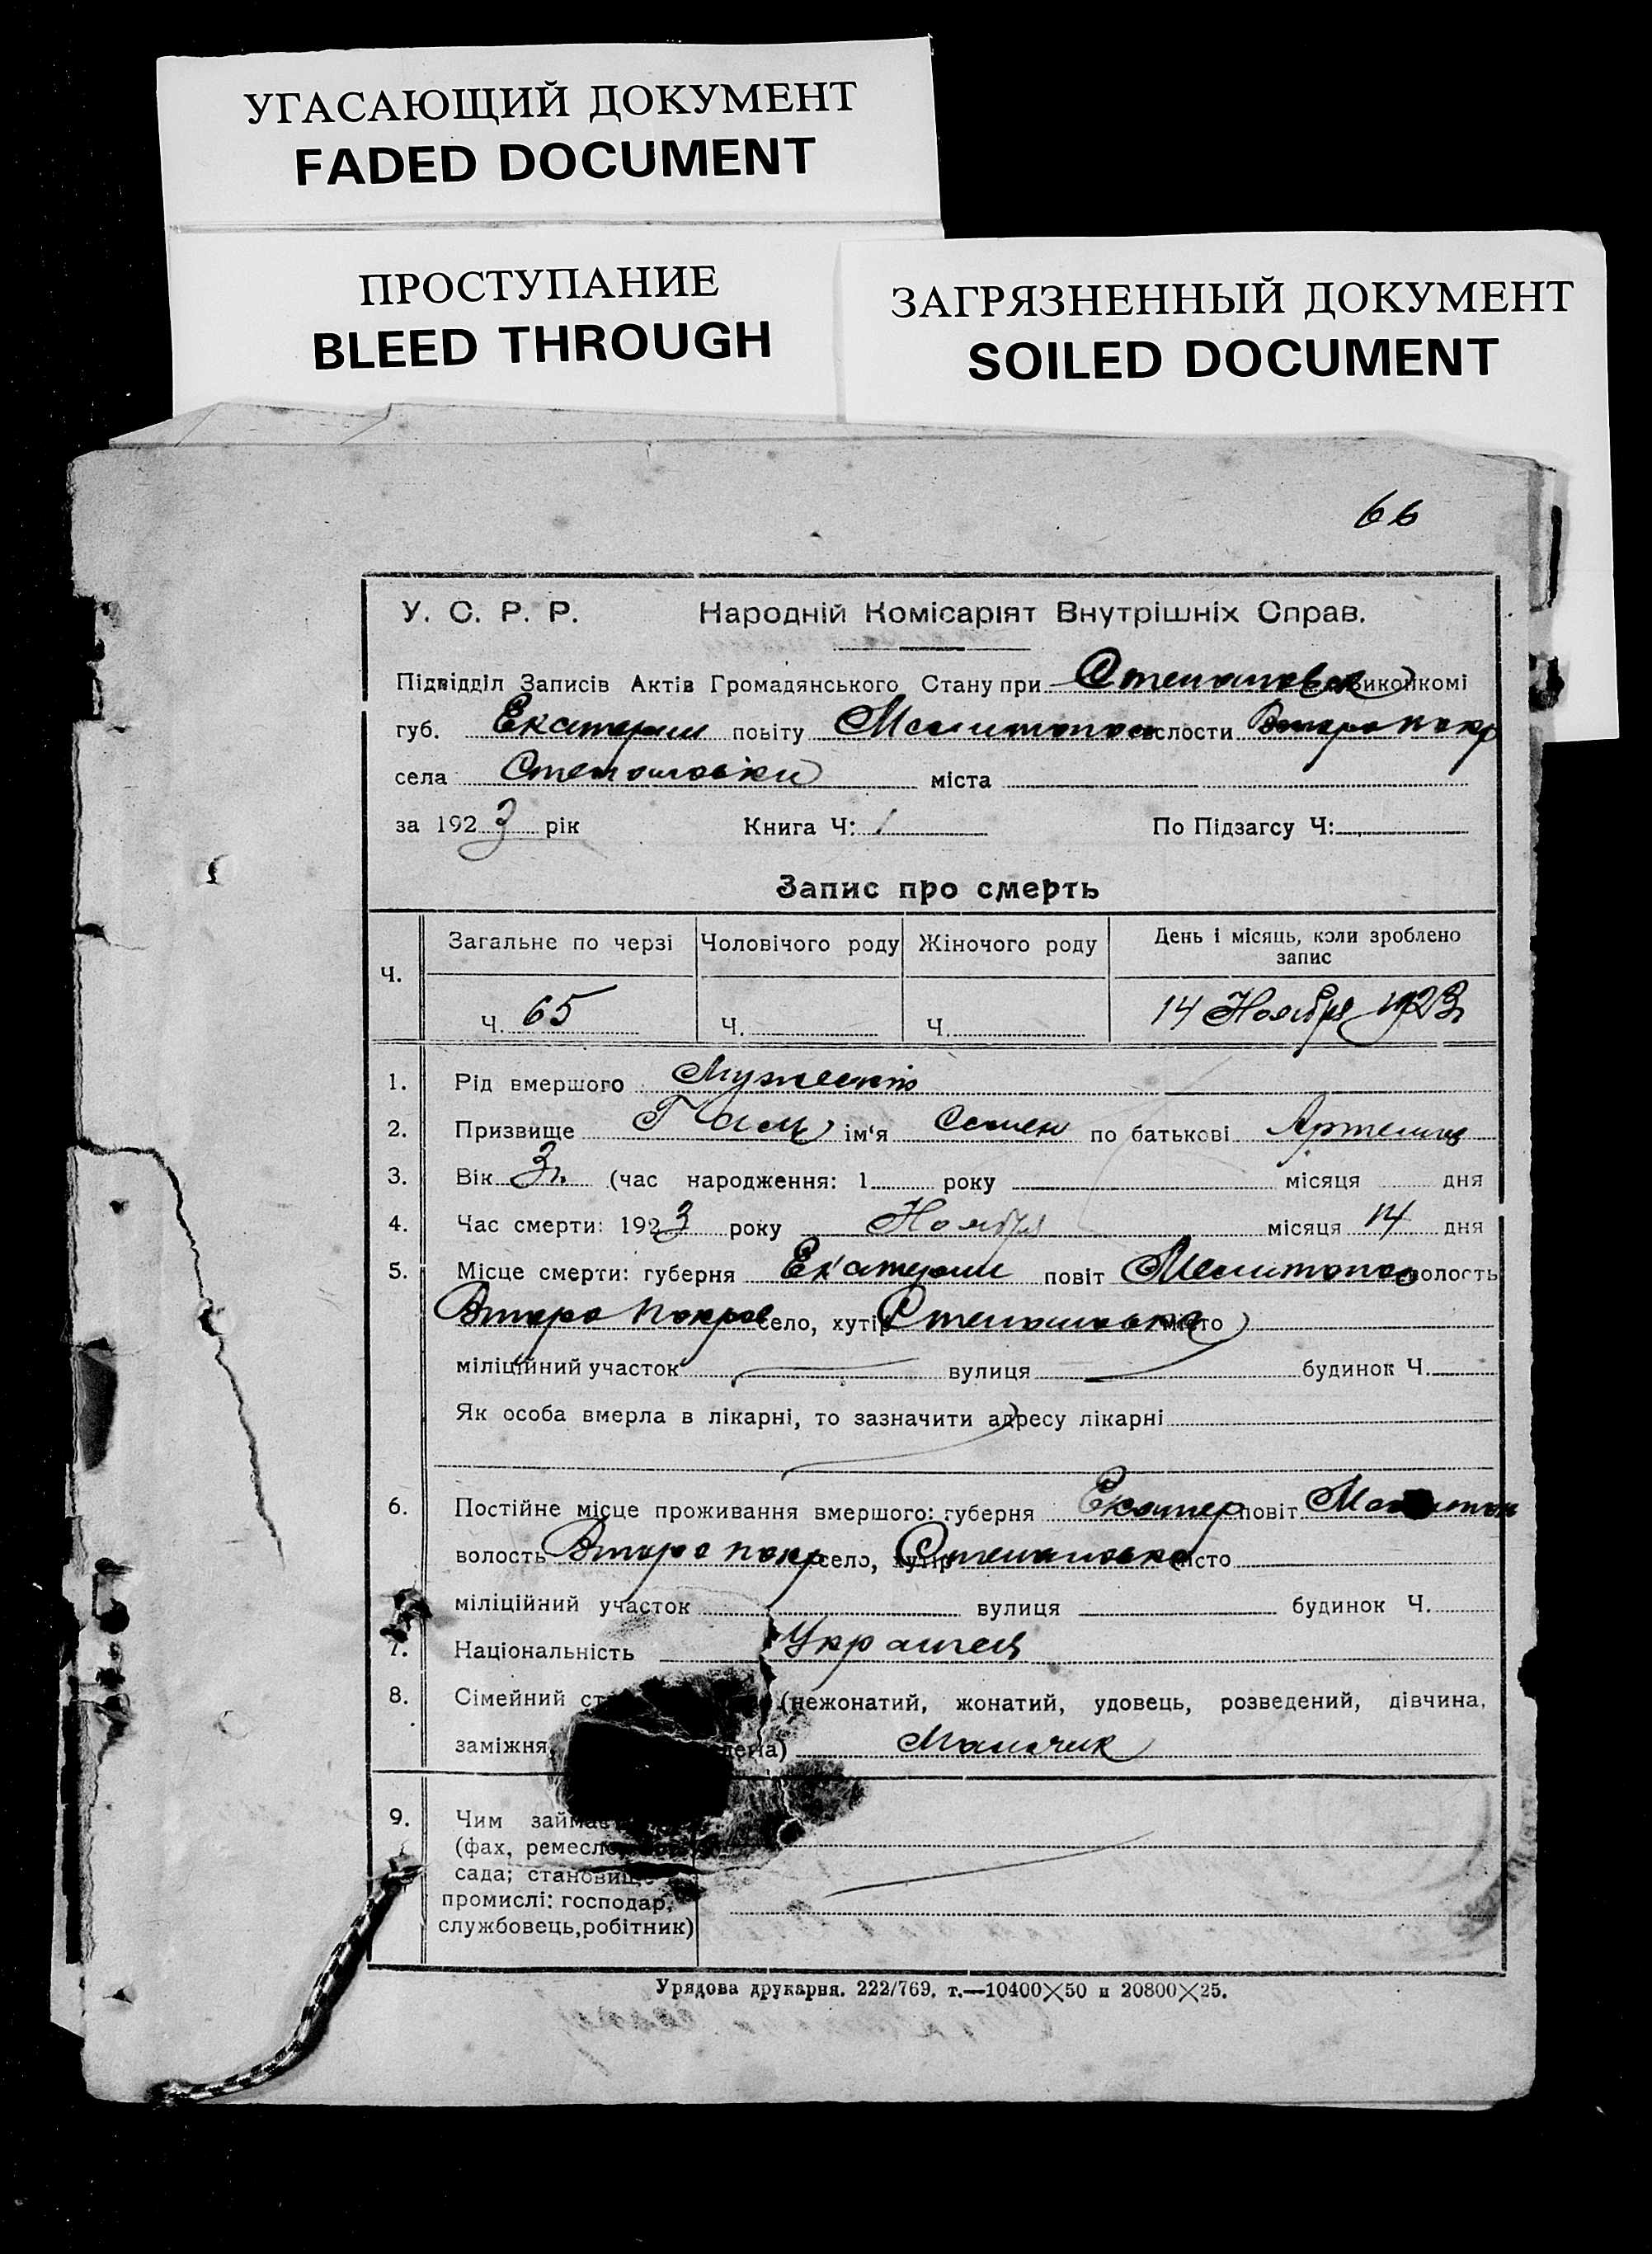 УГАСАЮЩИЙ ДОКУМЕНТ
FADED DOCUMENT
ПРОСТУПАНИЕ
BLEED THROUGH
ЗАГРЯЗНЕННЫЙ ДОКУМЕНТ
SOILED DOCUMENT
66
У. С. Р. Р. Народній Комісаріят Внутрішніх Справ.
Підвідділ Записів Актів Громадянського Стану при Степановск виконкомі
губ. Екатерин повіту Мелитопол волости Второ покр
села Степановки міста
за 1923 рік Книга Ч: 1 По Підзагсу Ч:
Запис про смерть
Ч. Загальне по черзі Чоловічого роду Жіночого роду День і місяць, коли зроблено
запис
Ч. 65 Ч. Ч. 14 Ноября 1923
1. Рід вмершого Мужеский
2. Призвище ім'я Семен по батькові
3. Вік 3 г. (час народження: 1 року місяця дня
4. Час смерти: 1923 року Ноября місяця 14 дня
5. Місце смерти: губерня Екатерин повіт Мелитопол волость
Второ Покров село, хутір Степановка місто
міліційний участок вулиця будинок Ч.
Як особа вмерла в лікарні, то зазначити адресу лікарні
6. Постійне місце проживання вмершого: губерня Екатер повіт Мелитоп
волость Второ покр село, хутір Степановка місто
міліційний участок вулиця будинок Ч.
7. Національність Украинец
8. Сімейний ст (нежонатий, жонатий, удовець, розведений, дівчина,
заміжня, лена) Мальчик
9. Чим займа
(фах, ремесло
сада; становище
промислі: господар,
службовець, робітник)
Урядова друкарня. 222/769. т.—10400×50 и 20800×25.